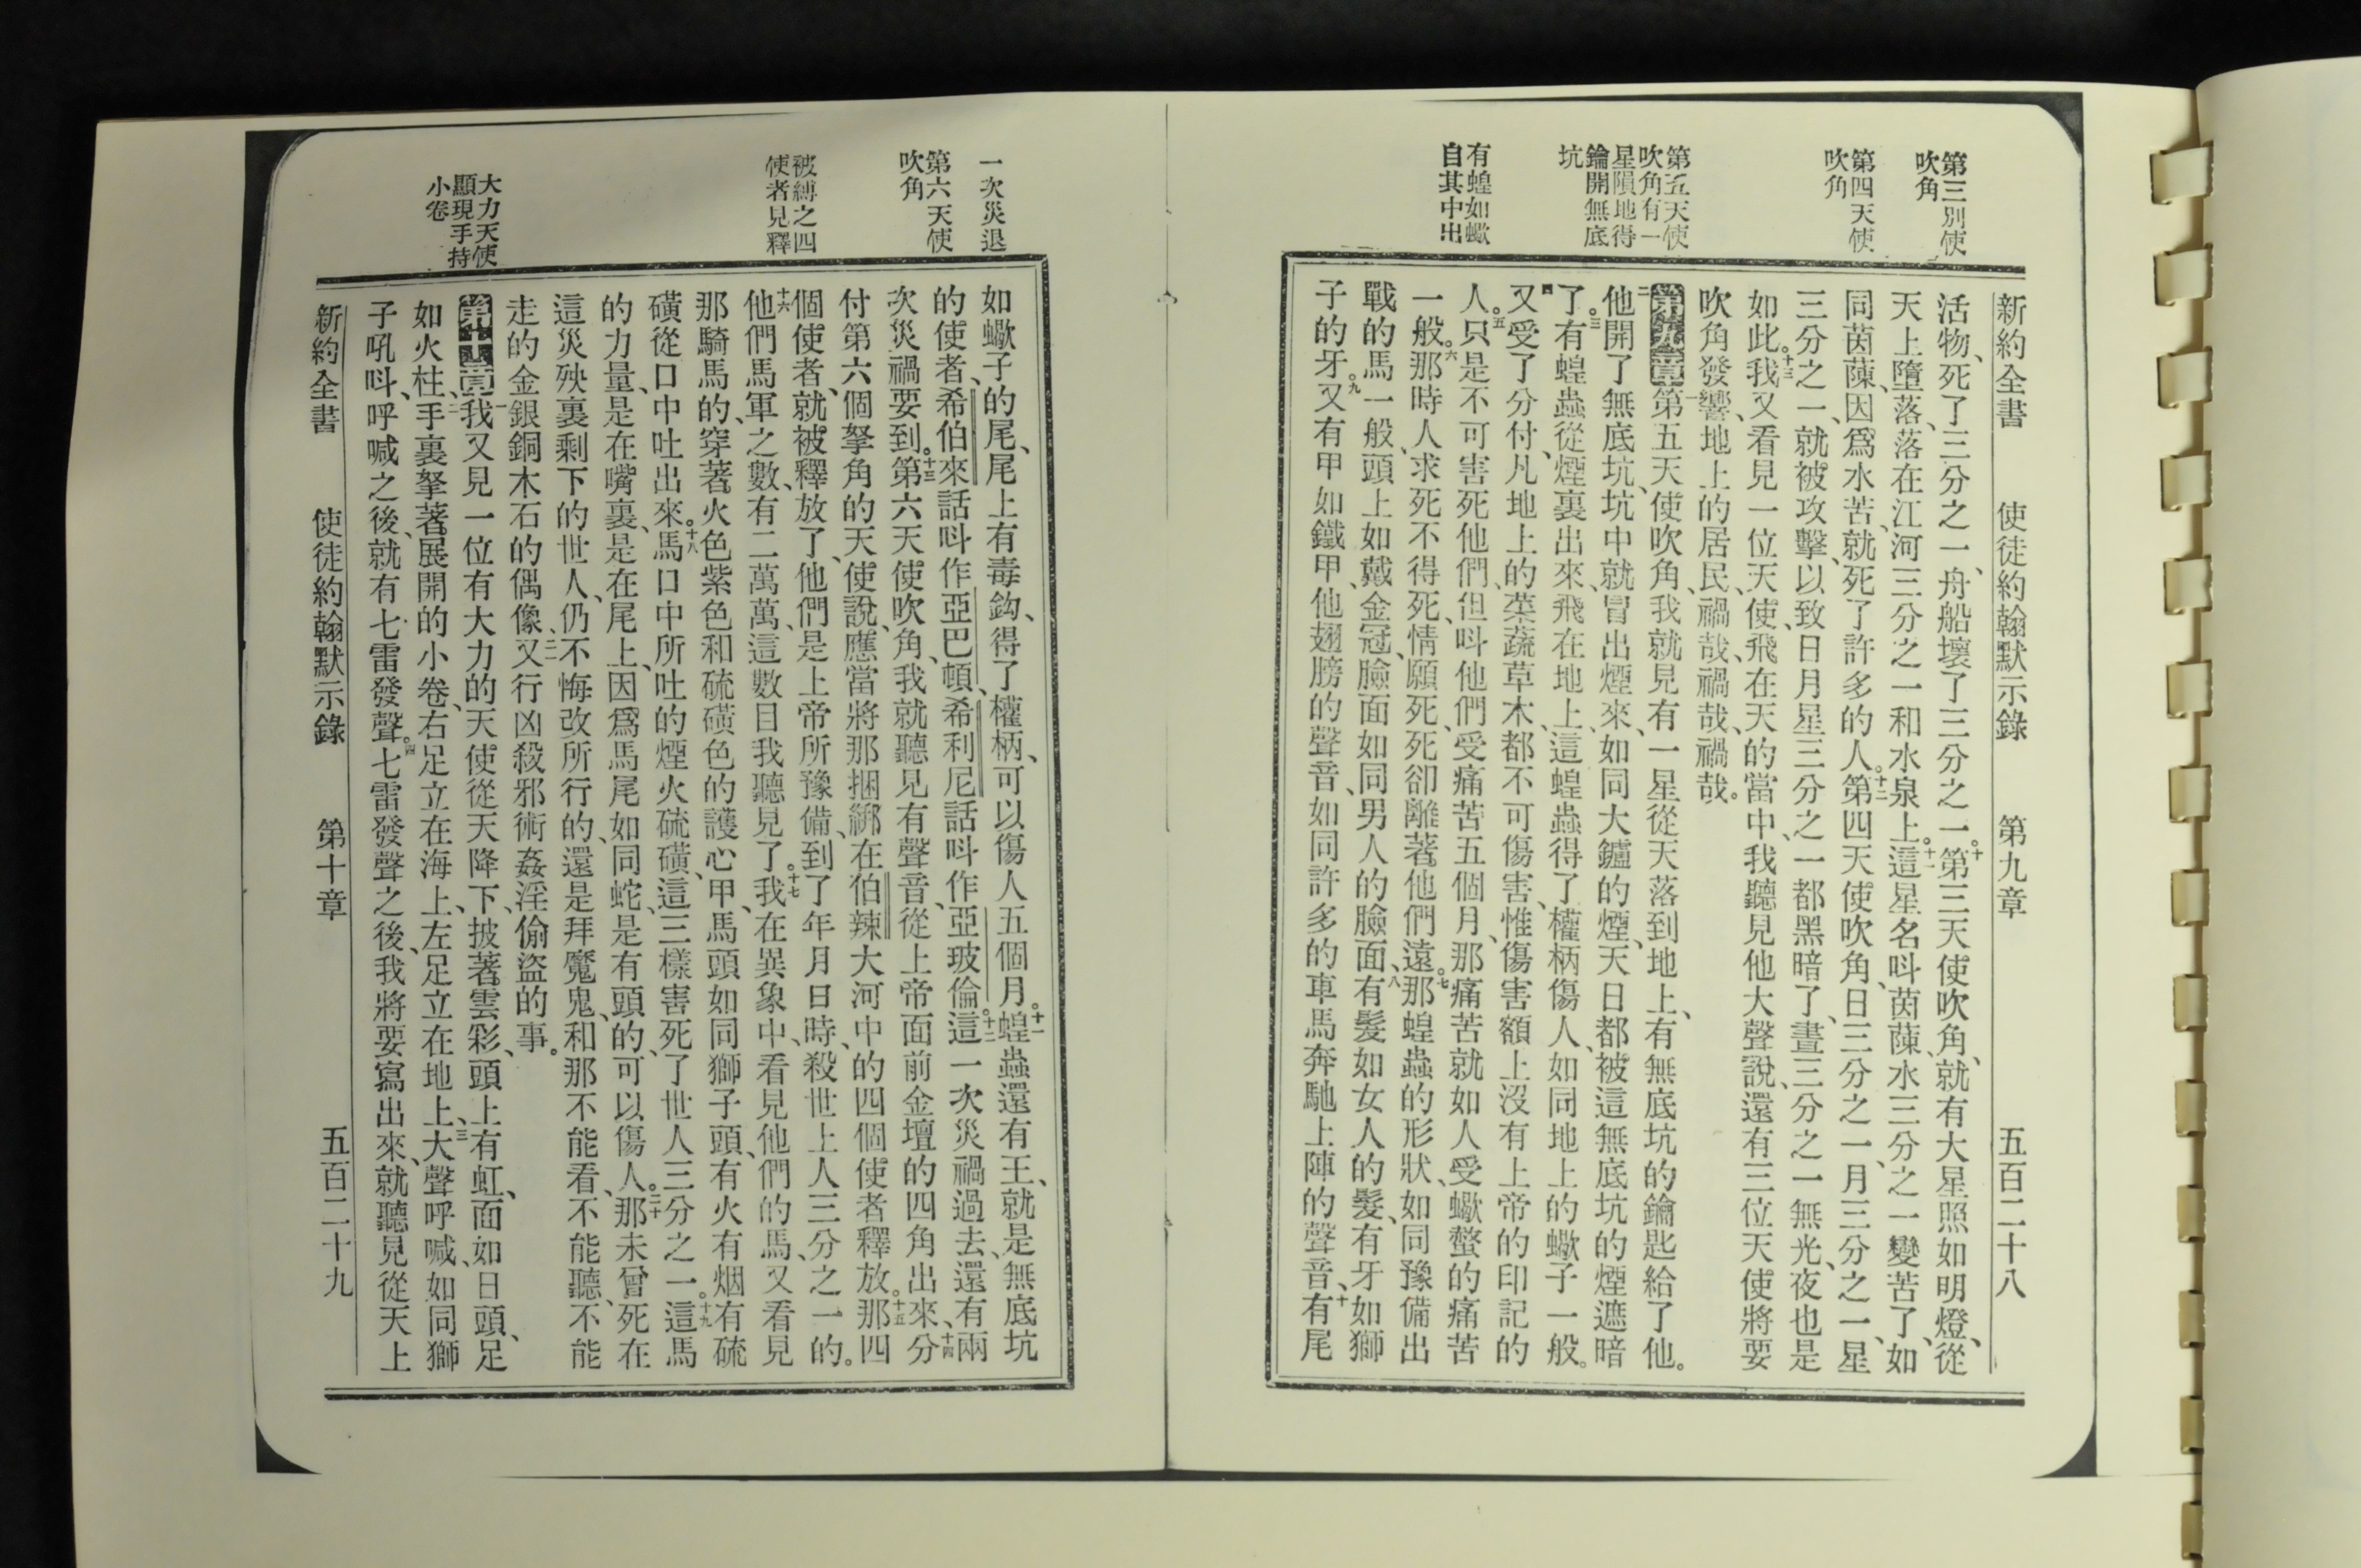 第三別使
吹角
第四天使
吹角
第五天使
吹角有一
星隕地得
鑰開無底
坑
有蝗如蠍
自其中出
新約全書 使徒約翰默示錄 第九章 五百二十八
活物、死了三分之一、舟船壞了三分之一。十第三天使吹角、就有大星照如明燈、從
天上墮落、落在江河三分之一和水泉上。十一這星名呌茵蔯、水三分之一變苦了、如
同茵蔯、因爲水苦、就死了許多的人。十二第四天使吹角、日三分之一、月三分之一、星
三分之一、就被攻擊、以致日月星三分之一都黑暗了、晝三分之一無光、夜也是
如此。十三我又看見一位天使、飛在天的當中、我聽見他大聲說、還有三位天使將要
吹角發響、地上的居民、禍哉、禍哉、禍哉。
第九章一第五天使吹角、我就見有一星從天落到地上、有無底坑的鑰匙給了他。
二他開了無底坑、坑中就冒出煙來、如同大鑪的煙、天日都被這無底坑的煙遮暗
了。三有蝗蟲從煙裏出來、飛在地上、這蝗蟲得了權柄傷人、如同地上的蠍子一般。
四又受了分付、凡地上的菜蔬草木、都不可傷害、惟傷害額上沒有上帝的印記的
人。五只是不可害死他們、但呌他們受痛苦五個月、那痛苦就如人受蠍螫的痛苦
一般。六那時人求死不得死、情願死、死卻離著他們遠。七那蝗蟲的形狀、如同豫備出
戰的馬一般、頭上如戴金冠、臉面如同男人的臉面、八有髮如女人的髮、有牙如獅
子的牙。九又有甲如鐵甲、他翅膀的聲音、如同許多的車馬奔馳上陣的聲音、十有尾
一次災退
第六天使
吹角
被縛之四
使者見釋
大力天使
顯現手持
小卷
如蠍子的尾、尾上有毒鈎、得了權柄、可以傷人五個月。十一蝗蟲還有王、就是無底坑
的使者、希伯來話呌作亞巴頓、希利尼話呌作亞玻倫。十二這一次災禍過去、還有兩
次災禍要到。十三第六天使吹角、我就聽見有聲音、從上帝面前金壇的四角出來、十四分
付第六個拏角的天使說、應當將那捆綁在伯辣大河中的四個使者釋放。十五那四
個使者、就被釋放了、他們是上帝所豫備、到了年月日時、殺世上人三分之一的。
十六他們馬軍之數、有二萬萬、這數目我聽見了。十七我在異象中、看見他們的馬、又看見
那騎馬的、穿著火色紫色和硫磺色的護心甲、馬頭如同獅子頭、有火有烟有硫
磺從口中吐出來。十八馬口中所吐的煙火硫磺、這三樣害死了世人三分之一。十九這馬
的力量、是在嘴裏、是在尾上、因爲馬尾如同蛇、是有頭的、可以傷人。二十那未曾死在
這災殃裏剩下的世人、仍不悔改所行的、還是拜魔鬼、和那不能看、不能聽、不能
走的金銀銅木石的偶像、二一又行凶殺邪術姦淫偷盜的事。
第十章一我又見一位有大力的天使從天降下、披著雲彩、頭上有虹、面如日頭、足
如火柱、二手裏拏著展開的小卷、右足立在海上、左足立在地上、三大聲呼喊、如同獅
子吼呌、呼喊之後、就有七雷發聲。四七雷發聲之後、我將要寫出來、就聽見從天上
新約全書 使徒約翰默示錄 第十章 五百二十九